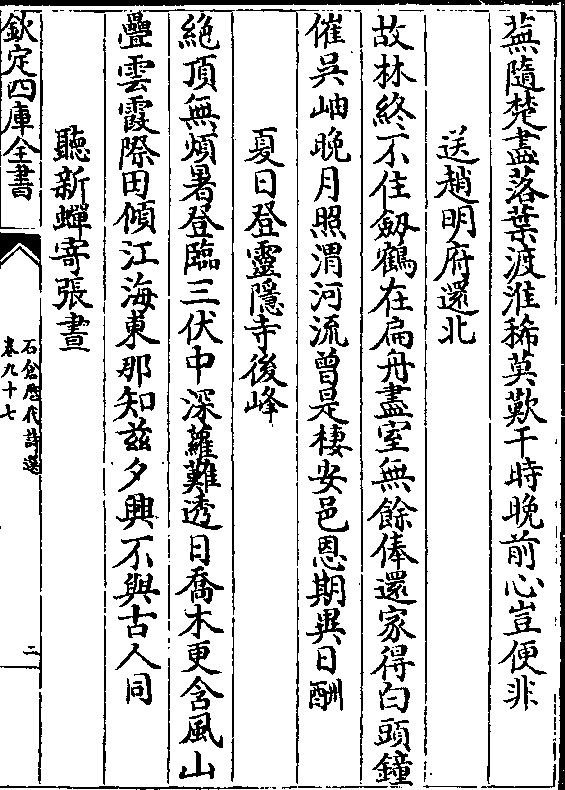 蕪隨楚盡落葉渡淮稀莫歎干時晚前心豈便非
送趙明府還北
故林終不住劔鶴在扁舟盡室無餘俸還家得白頭鐘
催吳岫晚月照渭河流曽是棲安邑恩期異日酬
夏日登靈隱寺後峰
絶頂無煩暑登臨三伏中深蘿難透日喬木更含風山
疊雲霞際田傾江海東那知兹夕興不與古人同
聽新蟬寄張晝
欽定四庫全書
石倉歴代詩選
卷九十七
二